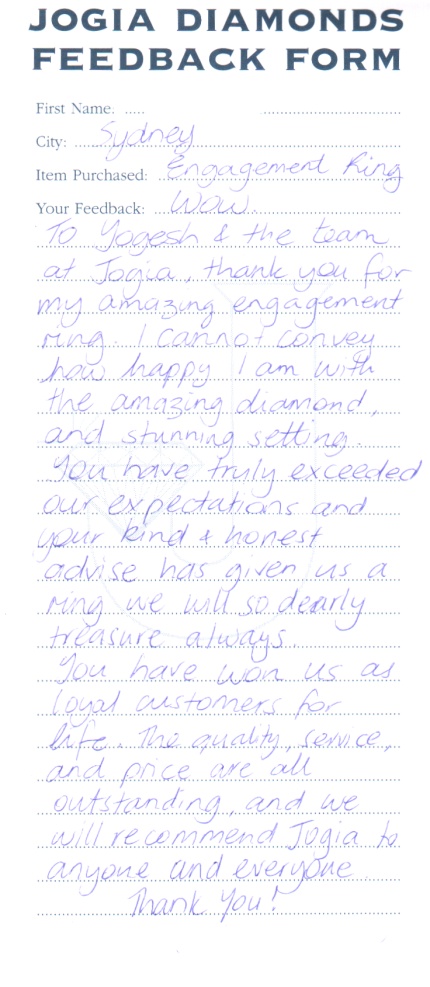 JOGIA DIAMONDS
FEEDBACK FORM
First Name: .....
City: Sydney
Item Purchased: Engagement Ring
Your Feedback: Wow.
To Yogesh & the team
at Jogia, thank you for
my amazing engagement
ring. I cannot convey
how happy I am with
the amazing diamond,
and stunning setting.
You have truly exceeded
our expectations and
your kind & honest
advise has given us a
ring we will so dearly
treasure always.
You have won us as
loyal customers for
life. The quality, service,
and price are all
outstanding, and we
will recommend Jogia to
anyone and everyone.
Thank You!